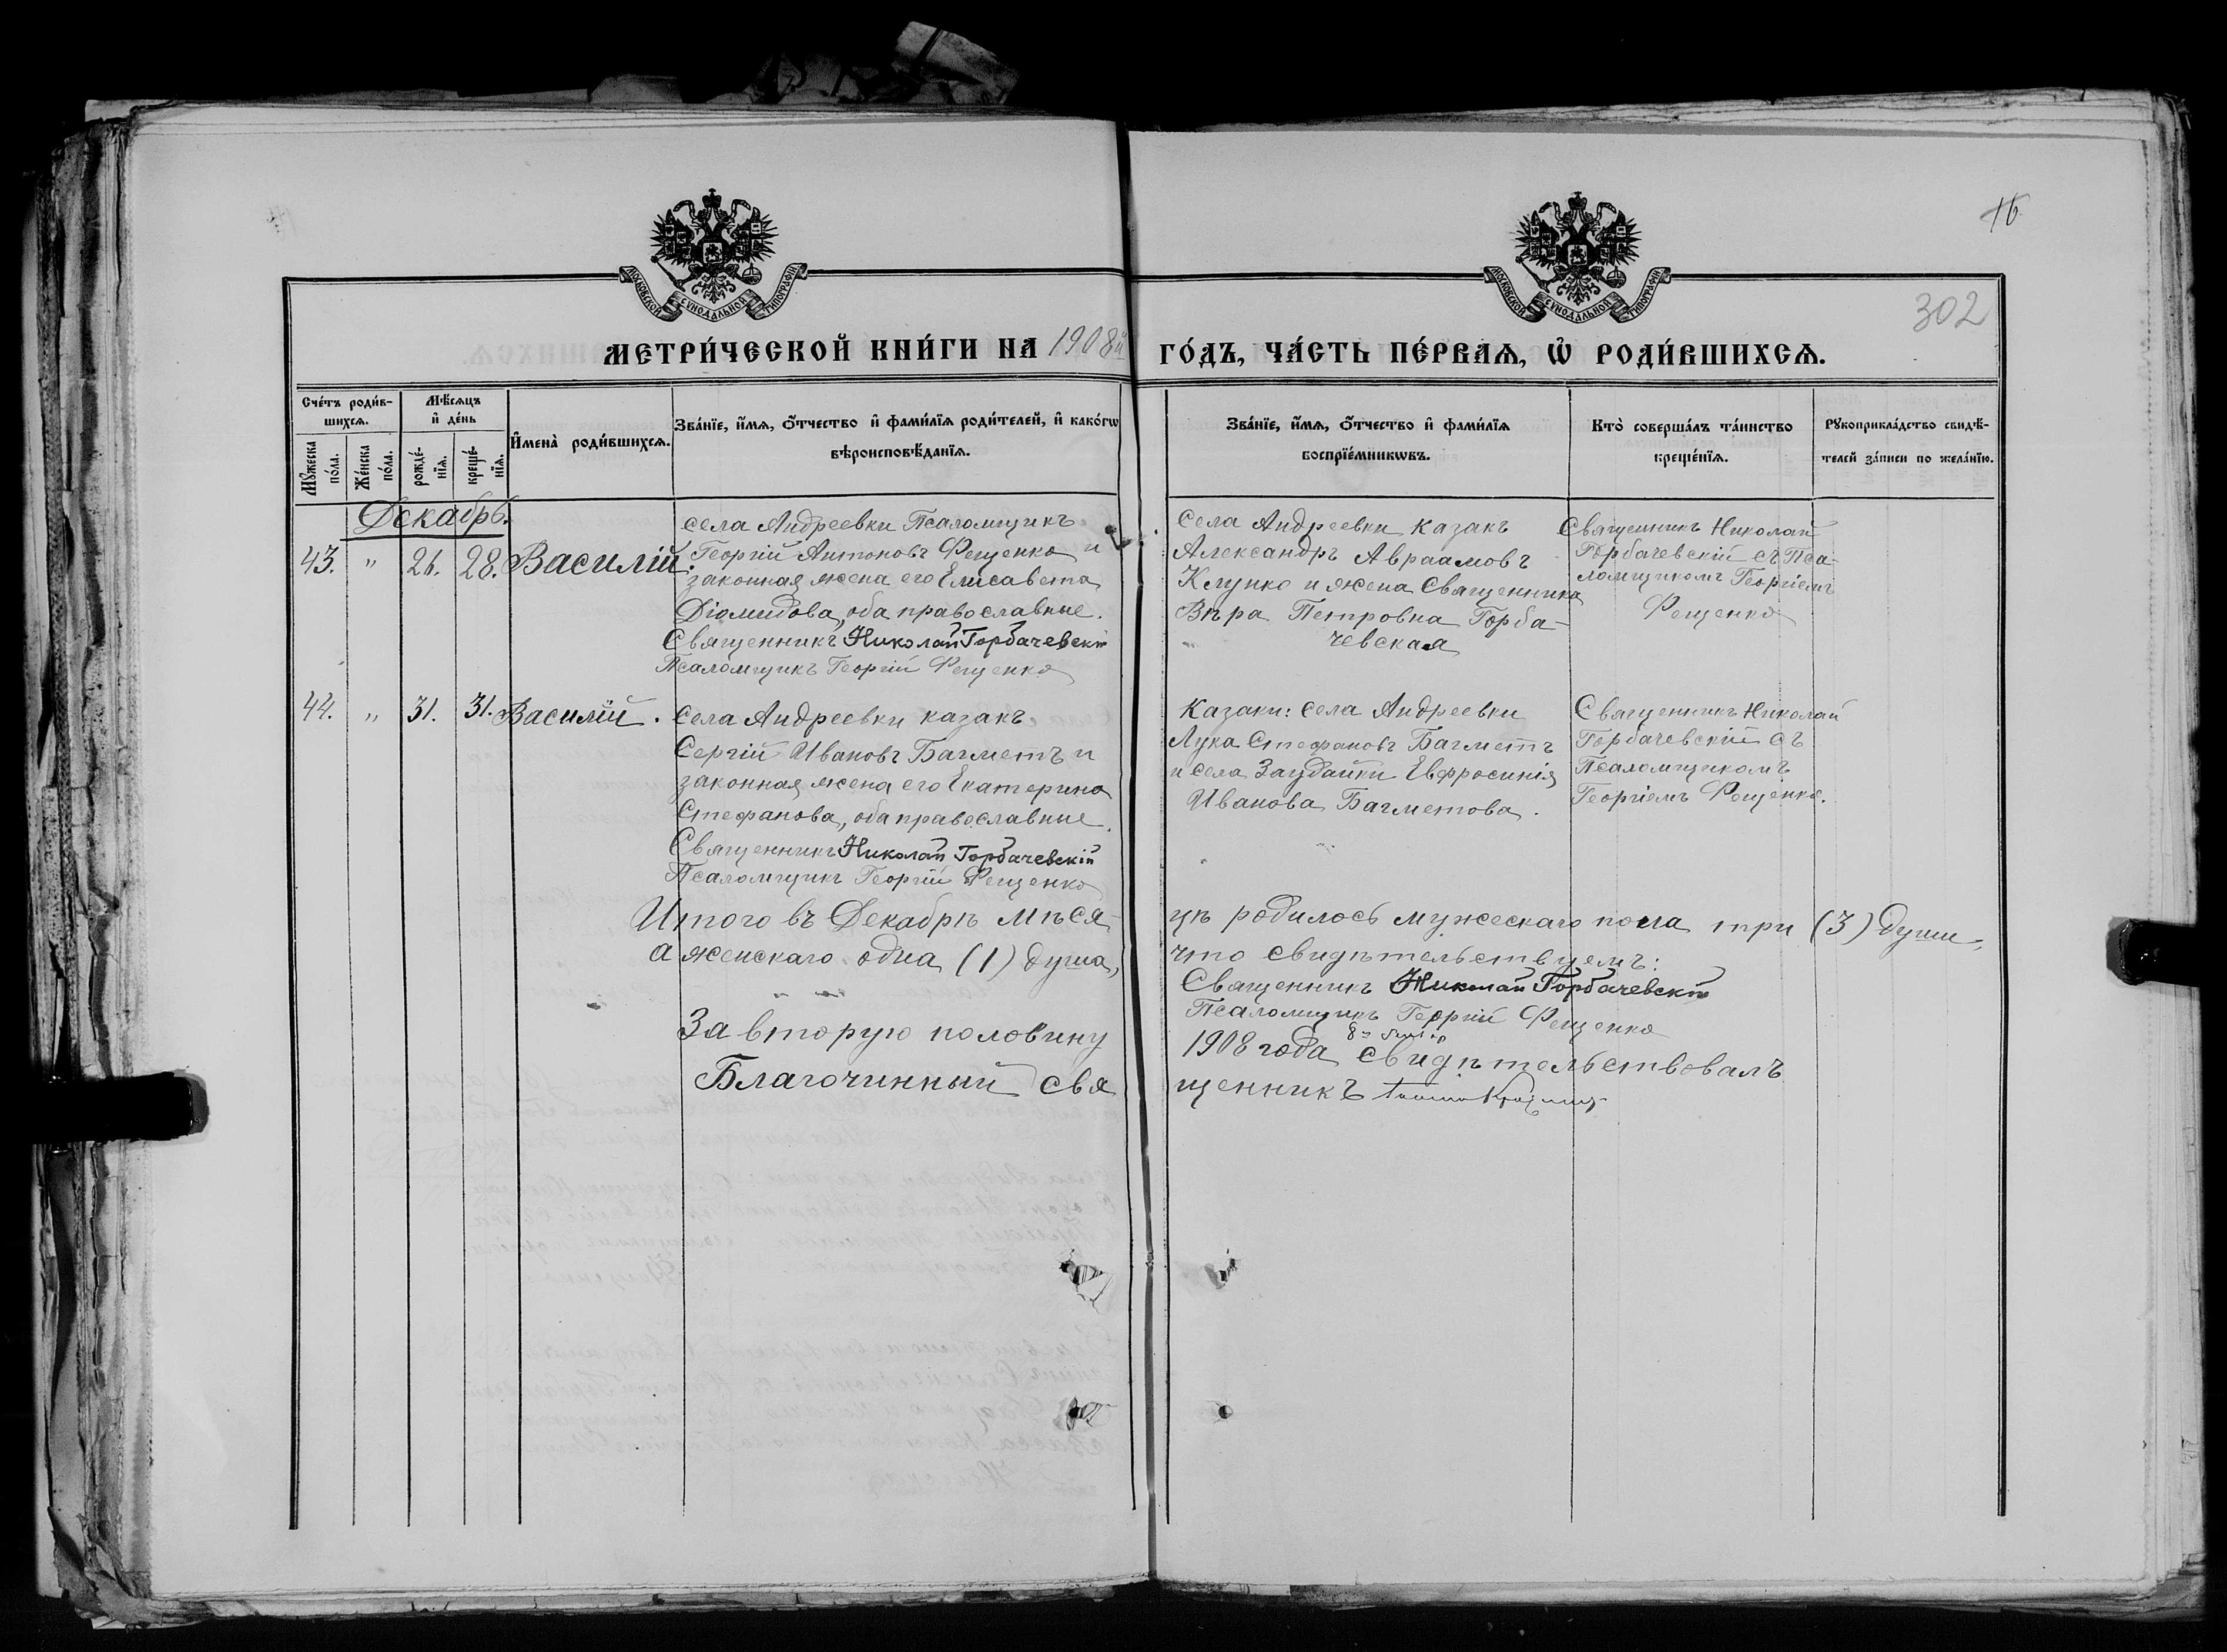 16
302
МОСКОВСКОЙ СѴНОДАЛЬНОЙ ТИПОГРАФІИ
МОСКОВСКОЙ СѴНОДАЛЬНОЙ ТИПОГРАФІИ
МЕТРИ́ЧЕСКОЙ КНИ́ГИ НА 1908й ГО́ДЪ, ЧА́СТЬ ПЕ́РВАѦ, Ѡ҆ РОДИ́ВШИХСѦ.
Сче́тъ роди́в-
шихсѧ.
Мѣ́сѧцъ
и҆ де́нь
Мꙋ́жеска по́ла.
Же́нска по́ла.
рожде́-нїѧ.
креще́-нїѧ.
И҆мена̀ роди́вшихсѧ.
Зва́нїе, и҆́мѧ, ѻ҆́тчество и҆ фами́лїѧ роди́телей, и҆ како́гѡ
вѣроисповѣ́данїѧ.
Зва́нїе, и҆́мѧ, ѻ҆́тчество и҆ фами́лїѧ
воспрїе́мникѡвъ.
Кто̀ соверша́лъ та́инство
креще́нїѧ.
Рꙋкоприкла́дство свидѣ́-
телей за́писи по жела́нїю.
Декабрь.
43. " 26. 28. Василій.
села Андреевки Псаломщикъ
Георгій Антоновъ Фещенко и
законная жена его Елисавета
Діомидова, оба православные.
Священникъ Николай Горбачевскій
Псаломщикъ Георгій Фещенко
Села Андреевки казакъ
Александръ Авраамовъ
Клунко и жена Священника
Вѣра Петровна Горба-
чевская
Священникъ Николай
Горбачевскій съ Пса-
ломщикомъ Георгіемъ
Фещенко
44. " 31. 31. Василій.
Села Андреевки казакъ
Сергій Ивановъ Багметъ и
законная жена его Екатерина
Стефанова, оба православные.
Священникъ Николай Горбачевскій
Псаломщикъ Георгій Фещенко
Казаки: села Андреевки
Лука Стефановъ Багметъ
и села Заудайки Евфросинія
Иванова Багметова.
Священникъ Николай
Горбачевскій съ
Псаломщикомъ
Георгіемъ Фещенко.
Итого въ Декабрѣ мѣся-
цѣ родилось мужескаго пола три (3) души,
а женскаго одна (1) душа,
что свидѣтельствуемъ:
Священникъ Николай Горбачевскій
Псаломщикъ Георгій Фещенко
За вторую половину
1908 года свидѣтельствовалъ
Благочинный свя
щенникъ